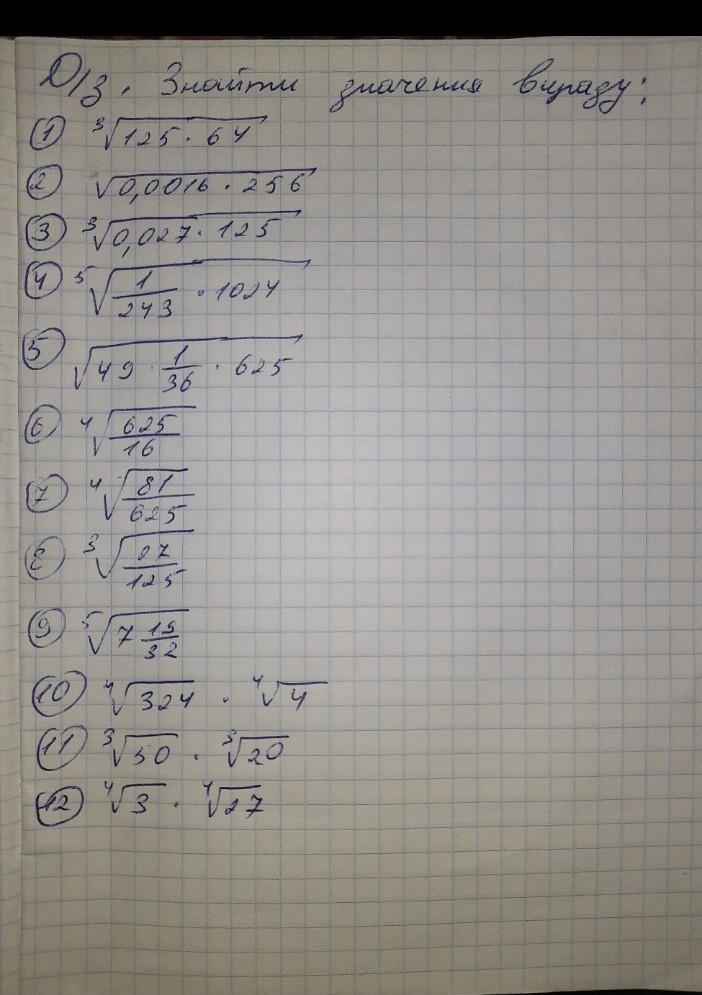 Д/з. Знайти значення виразу:
① ∛(125 · 64)
② √(0,0016 · 256)
③ ∛(0,027 · 125)
④ ⁵√(1/243 · 1024)
⑤ √(49 · 1/36 · 625)
⑥ ⁴√(625/16)
⑦ ⁴√(81/625)
⑧ ∛(27/125)
⑨ ⁵√(7 19/32)
⑩ ⁴√324 · ⁴√4
⑪ ∛50 · ∛20
⑫ ⁴√3 · ⁴√27